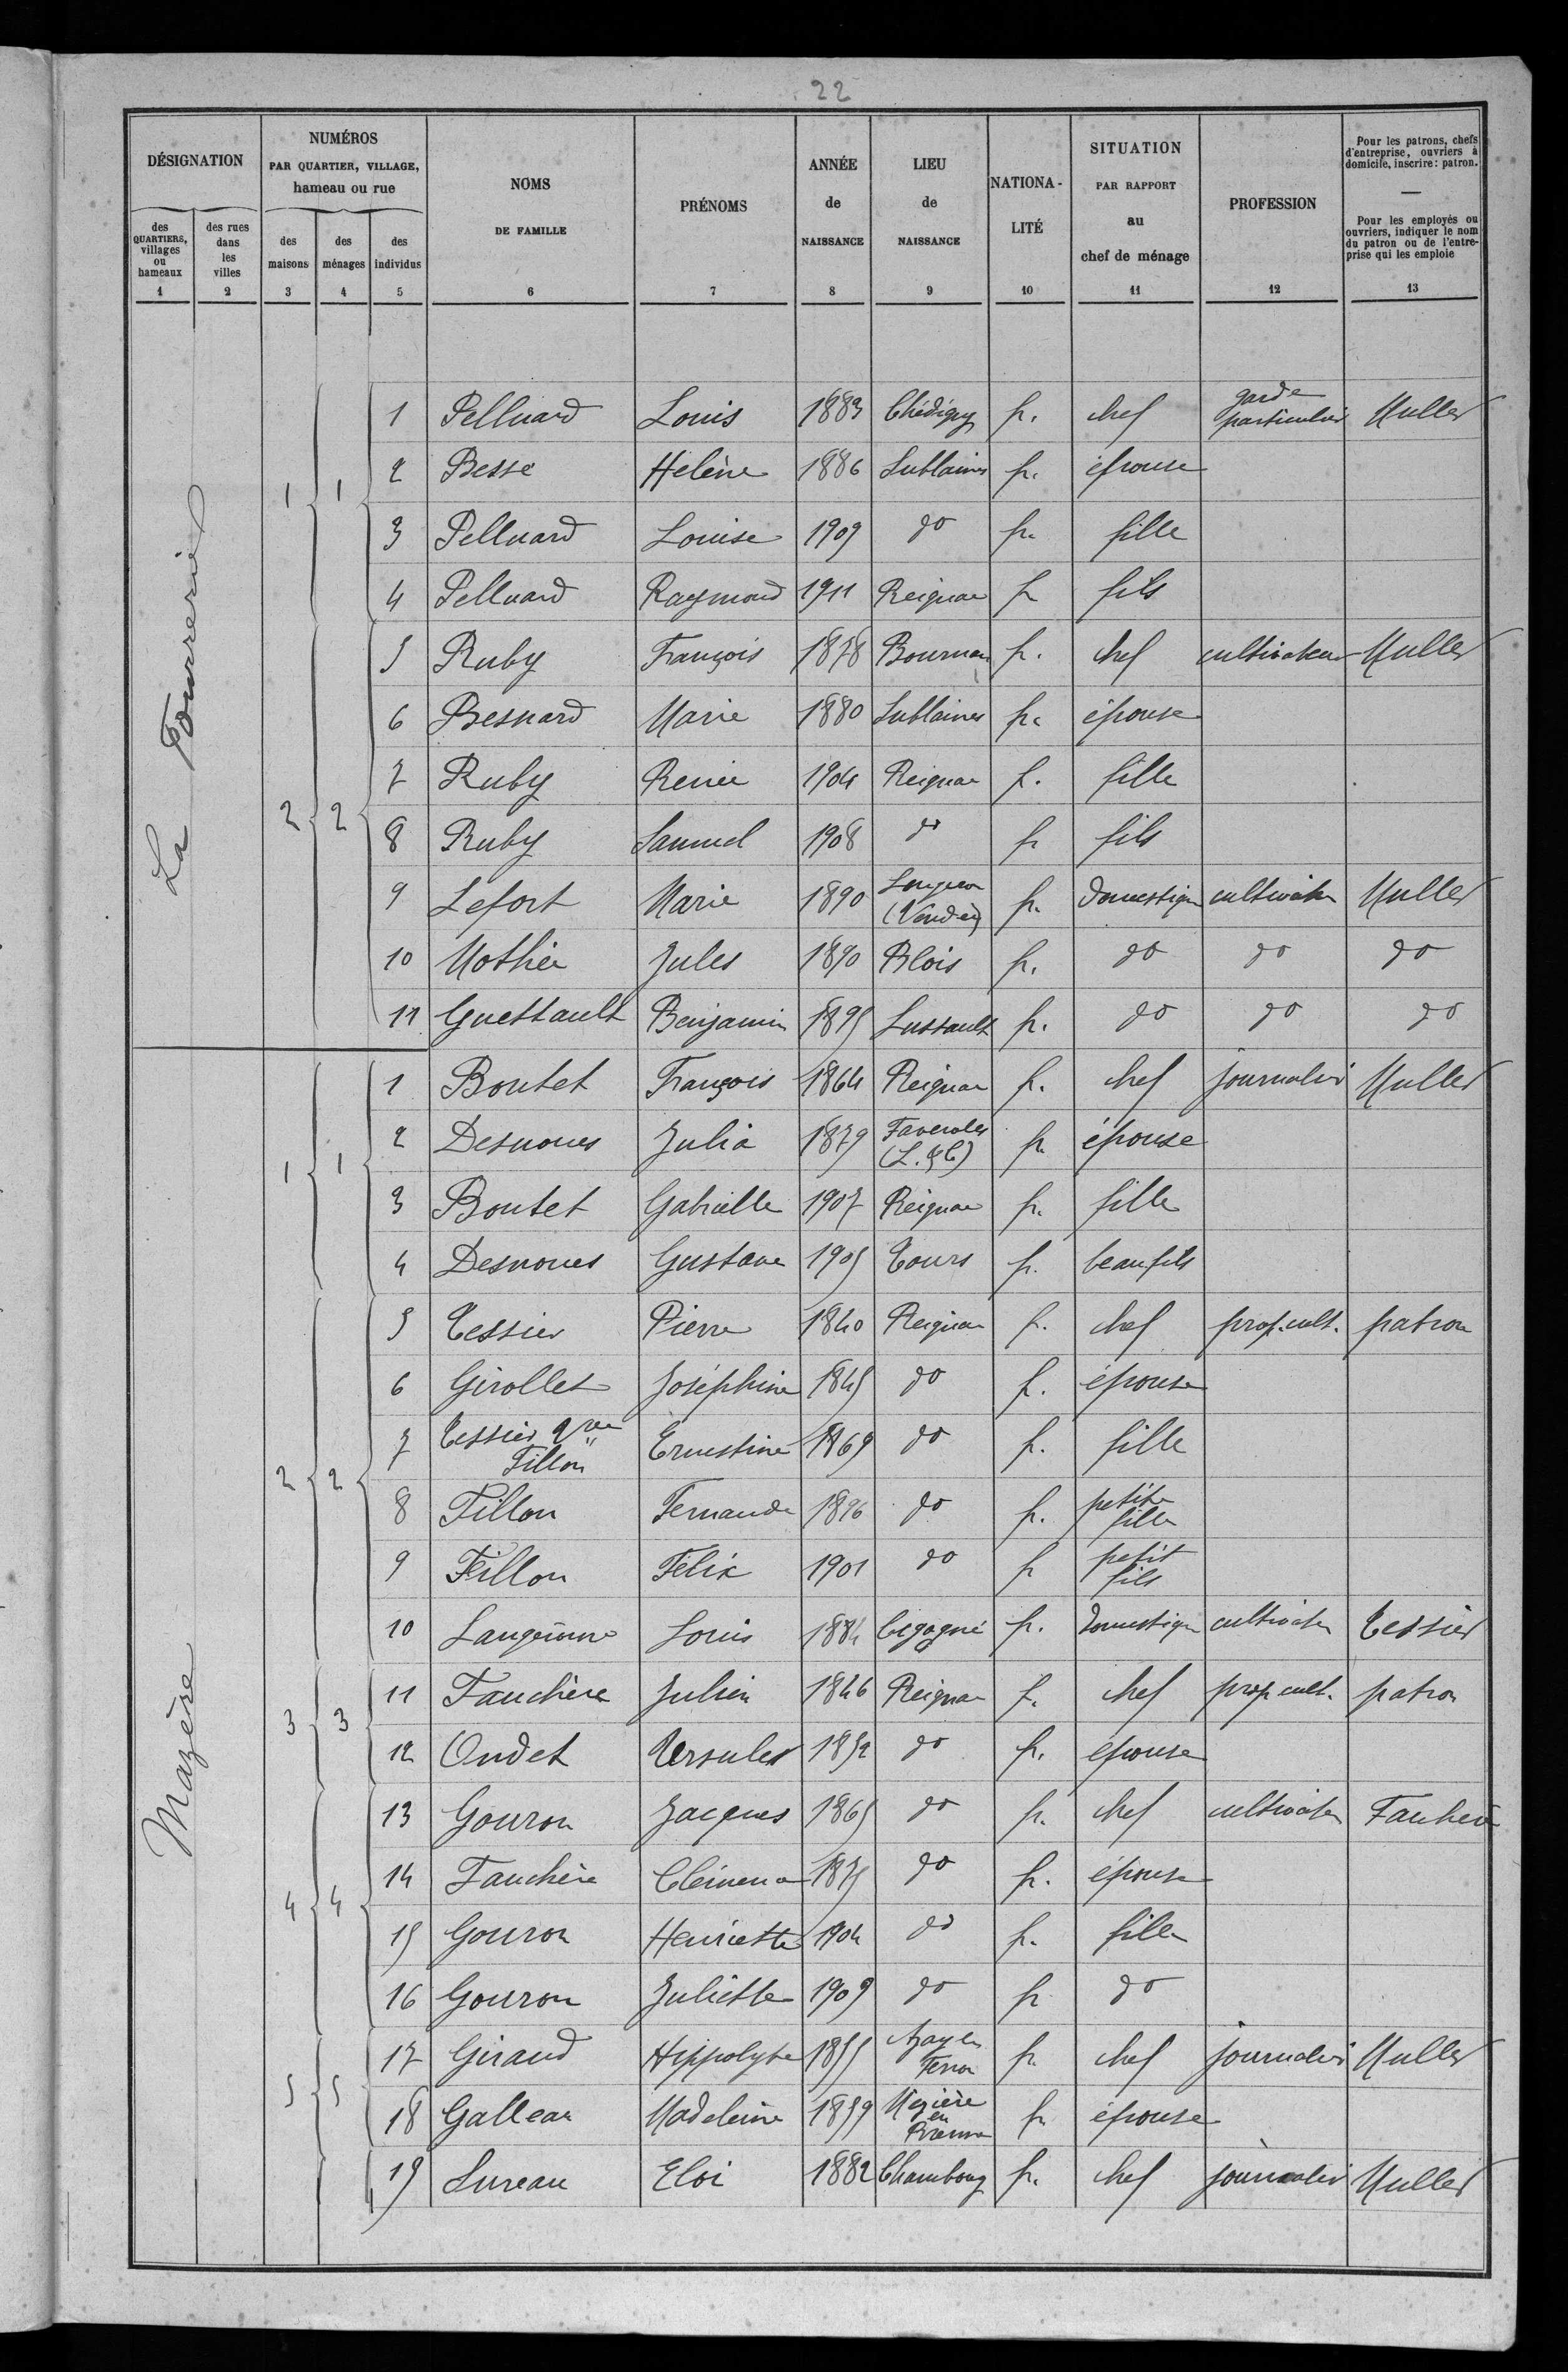 22
DÉSIGNATION
NUMÉROS
PAR QUARTIER, VILLAGE,
hameau ou rue
NOMS
DE FAMILLE
PRÉNOMS
ANNÉE
de
NAISSANCE
LIEU
de
NAISSANCE
NATIONA-
LITÉ
SITUATION
PAR RAPPORT
au
chef de ménage
PROFESSION
Pour les patrons, chefs
d'entreprise, ouvriers à
domicile, inscrire: patron.
—
Pour les employés ou
ouvriers, indiquer le nom
du patron ou de l'entre-
prise qui les emploie
des
QUARTIERS,
villages
ou
hameaux
des rues
dans
les
villes
des
maisons
des
ménages
des
individus
1 2 3 4 5 6 7 8 9 10 11 12 13
La
1 1
1 Pelluard Louis 1883 Chédigny fr. chef garde particulier Muller
2 Besse Hélène 1886 Sublaines fr. épouse
3 Pelluard Louise 1909 do fr. fille
4 Pelluard Raymond 1911 Reignac fr fils
2 2
5 Ruby François 1878 Bournan fr. chef cultivateur Muller
6 Besnard Marie 1880 Sublaines fr. épouse
7 Ruby Renée 1904 Reignac f. fille
8 Ruby Samuel 1908 do fr fils
9 Lefort Marie 1890 (Vendée) fr. domestique cultivateur Muller
10 Mothier Jules 1890 Blois fr. do do do
11 Guestault Benjamin 1895 Lussault fr. do do do
Mazère
1 1
1 Boutet François 1864 Reignac fr. chef journalier Muller
2 Desnoues Julia 1879 Faverolles (L. & C) fr épouse
3 Boutet Gabrielle 1907 Reignac fr. fille
4 Desnoues Gustave 1905 Tours fr. beau fils
2 2
5 Tessier Pierre 1840 Reignac f. chef prop. cult. patron
6 Girollet Joséphine 1845 do f. épouse
7 Tessier Vve Fillon Ernestine 1869 do f. fille
8 Fillon Fernande 1896 do fr. petite fille
9 Fillon Félix 1901 do fr petit fils
10 Louis 1884 Cigogné fr. domestique cultivateur Tessier
3 3
11 Fauchère Julien 1846 Reignac f. chef prop cult. patron
12 Oudet Ursules 1852 do fr. épouse
4 4
13 Gouron Jacques 1865 do fr. chef cultivateur Fauchère
14 Fauchère Clémence 1875 do fr. épouse
15 Gouron Henriette 1904 do fr. fille
16 Gouron Juliette 1909 do fr do
5 5
17 Giraud Hippolyte 1855 Azay le Ferron fr chef journalier Muller
18 Galleau Madeleine 1859 Mézière en Brenne fr épouse
19 Lureau Eloi 1882 Chambourg fr. chef journalier Muller